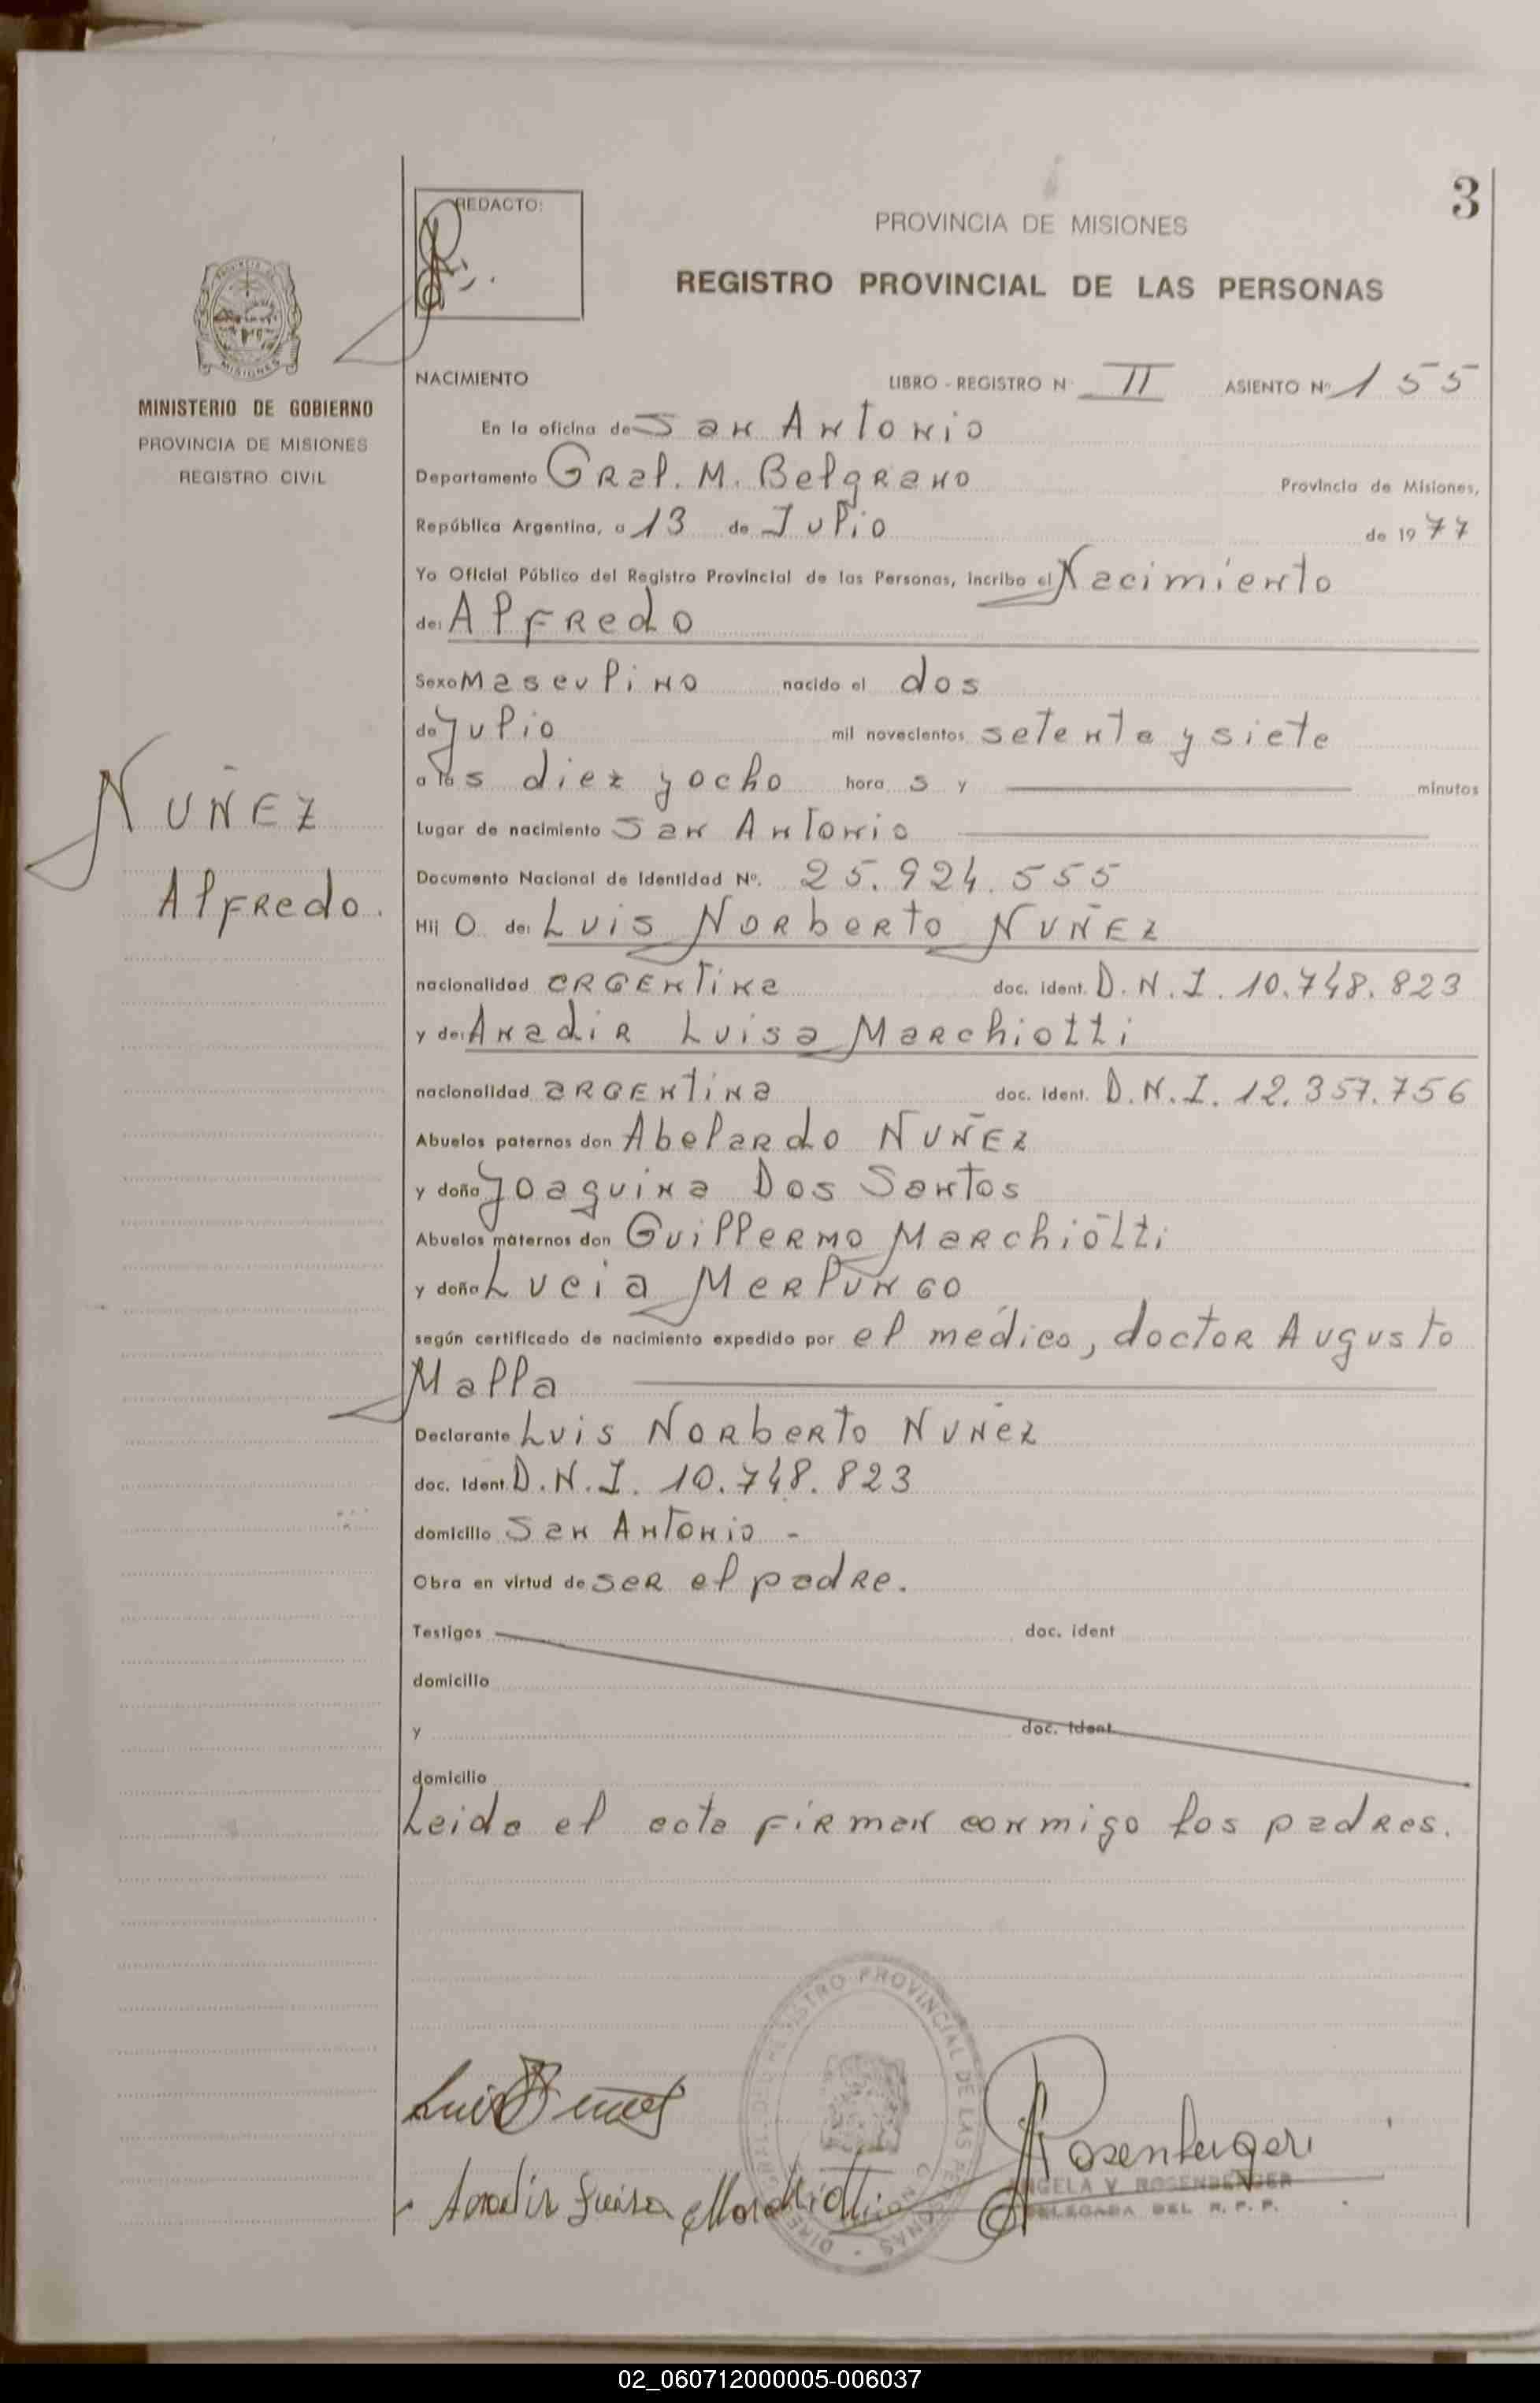 3
REDACTO:
PROVINCIA DE MISIONES
REGISTRO PROVINCIAL DE LAS PERSONAS
MISIONES
MINISTERIO DE GOBIERNO
PROVINCIA DE MISIONES
REGISTRO CIVIL
NACIMIENTO LIBRO - REGISTRO N· II ASIENTO Nº 155
En la oficina de San Antonio
Departamento Gral. M. Belgrano Provincia de Misiones,
República Argentina, a 13 de Julio de 1977
Yo Oficial Público del Registro Provincial de las Personas, incribo el Nacimiento
de: Alfredo
Sexo Masculino nacido el dos
de Julio mil novecientos setenta y siete
a las diez y ocho hora s y minutos
Lugar de nacimiento San Antonio
NUÑEZ
Alfredo.
Documento Nacional de Identidad Nº. 25.924.555
Hij o de: Luis Norberto NUÑEZ
nacionalidad argentina doc. ident. D.N.I. 10.748.823
y de: Anadir Luisa Marchiotti
nacionalidad argentina doc. ident. D.N.I. 12.357.756
Abuelos paternos don Abelardo NUÑEZ
y doña Joaquina Dos Santos
Abuelos maternos don Guillermo Marchiotti
y doña Lucia
según certificado de nacimiento expedido por el médico, doctor Augusto
Malla
Declarante Luis Norberto Nuñez
doc. Ident. D.N.I. 10.748.823
domicilio San Antonio -
Obra en virtud de ser el padre.
Testigos doc. ident
domicilio
y doc. ident.
domicilio
Leida el acta firman conmigo los padres.
REGISTRO PROVINCIAL DE LAS PERSONAS
Anadir Luisa Marchiotti
Rosenberger
ANGELA V. ROSENBERGER
DELEGADA DEL R. P. P.
02_060712000005-006037